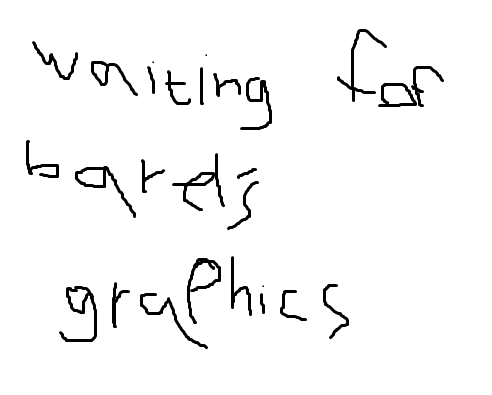 waiting for
bards
graphics